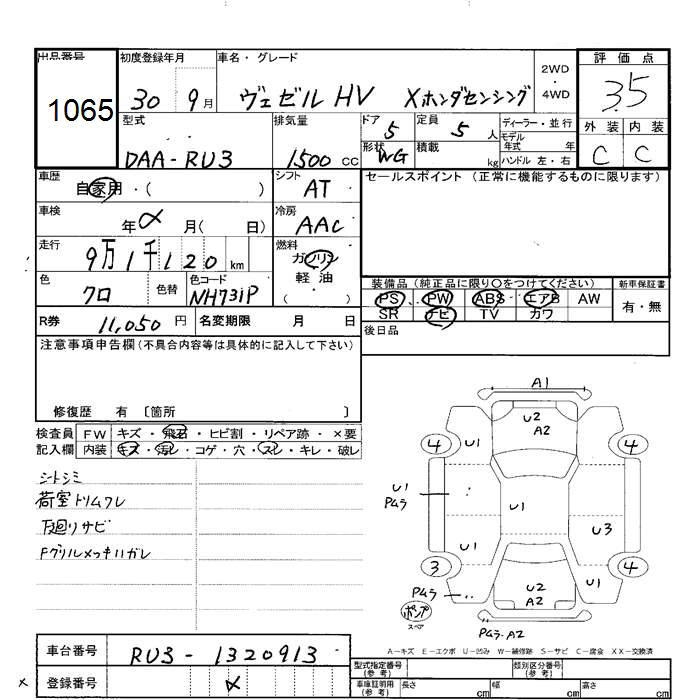 出品番号
1065
初度登録年月
30 9月
車名・グレード
ヴェゼル HV Xホンダセンシング
2WD
4WD
評価点
3.5
外装 内装
C C
型式
DAA-RU3
排気量
1500 CC
ドア
5
定員
5 人
形状
WG
積載
kg
ディーラー・並行
モデル
年式 年
ハンドル 左・右
車歴
自家用・( )
シフト
AT
セールスポイント (正常に機能するものに限ります)
車検
年 月( 日)
冷房
AAC
走行
9万1千120km
燃料
ガソリン
軽油
( )
色
クロ
色替
色コード
NH731P
装備品(純正品に限り〇をつけてください)
新車保証書
PS PW ABS エアB AW
SR ナビ TV カワ
有・無
R券
11,050円
名変期限 月 日
後日品
注意事項申告欄(不具合内容等は具体的に記入して下さい)
修復歴 有 〔箇所 〕
検査員
記入欄
FW キズ・飛石・ヒビ割・リペア跡・×要
内装 キズ・汚レ・コゲ・穴・スレ・キレ・破レ
シートシミ
荷室トリムスレ
下廻りサビ
Fグリルメッキハガレ
A1
U2
A2
4
4
U1
U1
PAラ
U1
U3
U1
3
4
U1
U2
A2
PAラ
ポンプ
スペア
PAラ・A2
A-キズ E-エクボ U-凹み W-補修跡 S-サビ C-腐食 XX-交換済
車台番号
RU3-1320913
登録番号
×
型式指定番号
(参考)
類別区分番号
(参考)
車庫証明用
(参考)
長さ cm
幅 cm
高さ cm